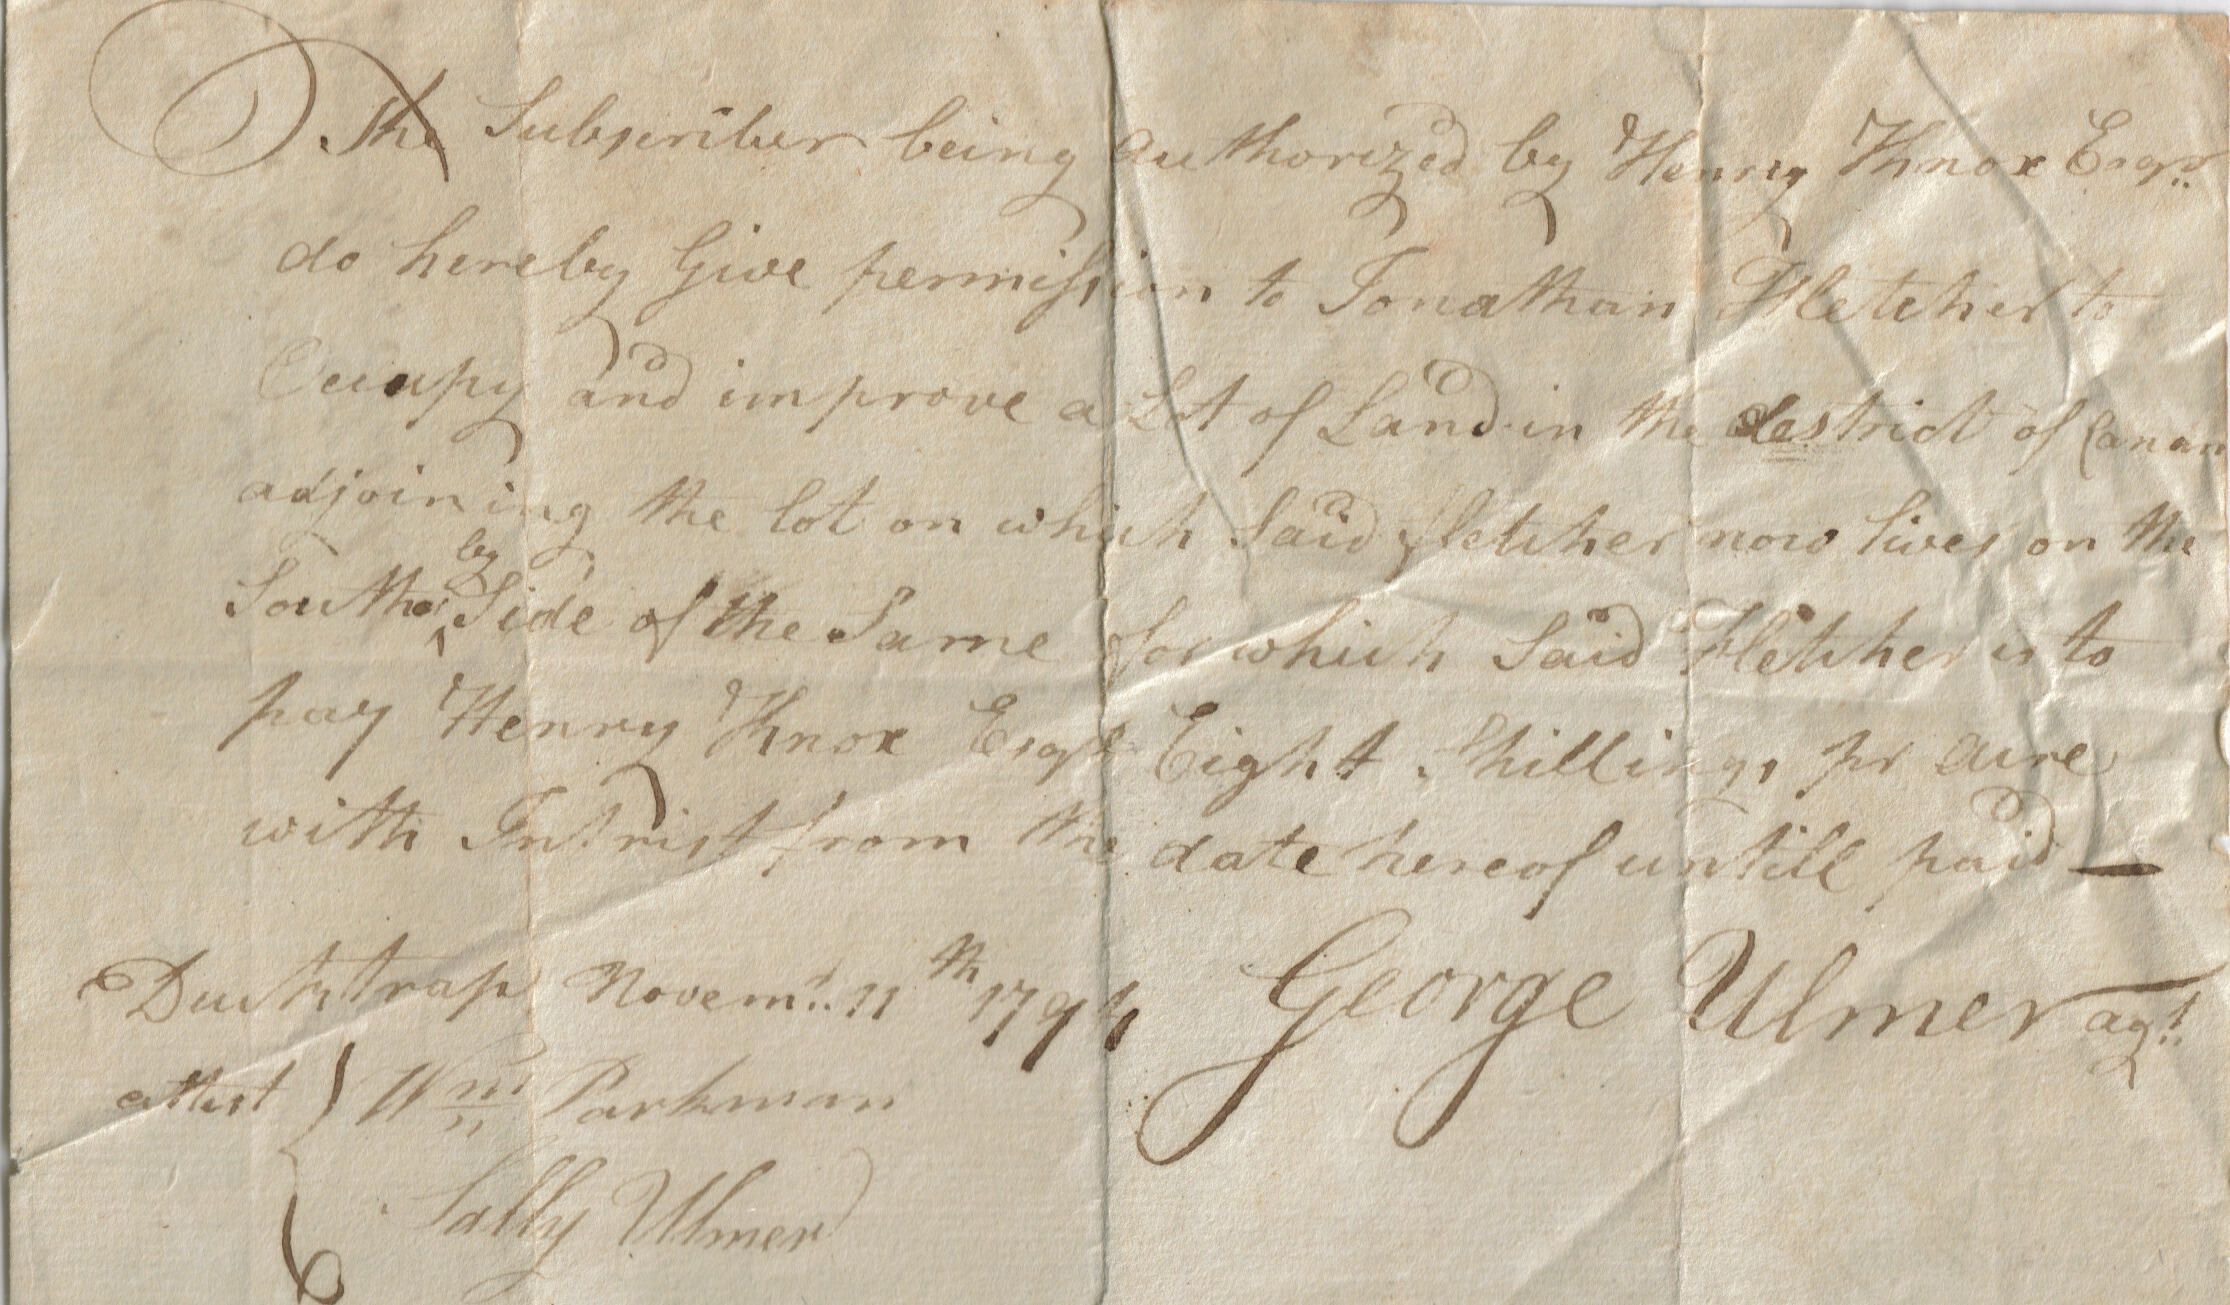 The Subscriber being authorized by Henry Knox Esqr.
do hereby Give permission to Jonathan Fletcher to
Occupy and improve a Lot of Land in the destrict of Canaan
adjoining the lot on which Said fletcher now lives on the
Southerly Side of the Same for which Said Fletcher is to
pay Henry Knox Esqr Eight Shillings pr acre
with Intrist from the date hereof untill paid —
Ducktrap Novemr. 11th 1794 George Ulmer agt.
attest } Wm Parkman
Sally Ulmer